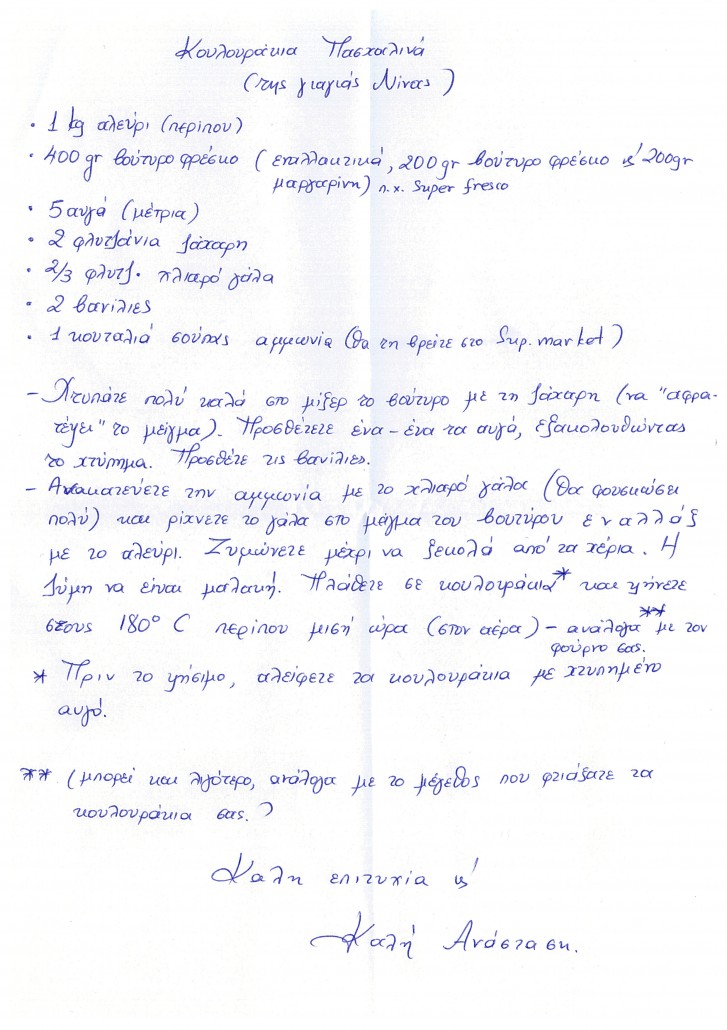 Κουλουράκια Πασχαλινά
(της γιαγιάς Νίνας)
· 1 kg αλεύρι (περίπου)
· 400 gr βούτυρο φρέσκο (εναλλακτικά, 200 gr βούτυρο φρέσκο κ' 200gr
μαργαρίνη) π.χ. Super fresco
· 5 αυγά (μέτρια)
· 2 φλυτζάνια ζάχαρη
· 2/3 φλυτζ. χλιαρό γάλα
· 2 βανίλιες
· 1 κουταλιά σούπας αμμωνία (θα τη βρείτε στο Sup. market)
- Χτυπάτε πολύ καλά στο μίξερ το βούτυρο με τη ζάχαρη (να "αφρα-
τέψει" το μείγμα). Προσθέτετε ένα-ένα τα αυγά, εξακολουθώντας
το χτύπημα. Προσθέτε τις βανίλιες.
- Ανακατεύετε την αμμωνία με το χλιαρό γάλα (θα φουσκώσει
πολύ) και ρίχνετε το γάλα στο μίγμα του βουτύρου εναλλάξ
με το αλεύρι. Ζυμώνετε μέχρι να ξεκολά από τα χέρια. Η
ζύμη να είναι μαλακή. Πλάθετε σε κουλουράκια* και ψήνετε
στους 180° C περίπου μισή ώρα (στον αέρα) - ανάλογα** με τον
φούρνο σας.
* Πριν το ψήσιμο, αλείφετε τα κουλουράκια με χτυπημένο
αυγό.
** (μπορεί και λιγότερο, ανάλογα με το μέγεθος που φτιάξατε τα
κουλουράκια σας.)
Καλη επιτυχία κ'
Καλή Ανάσταση.